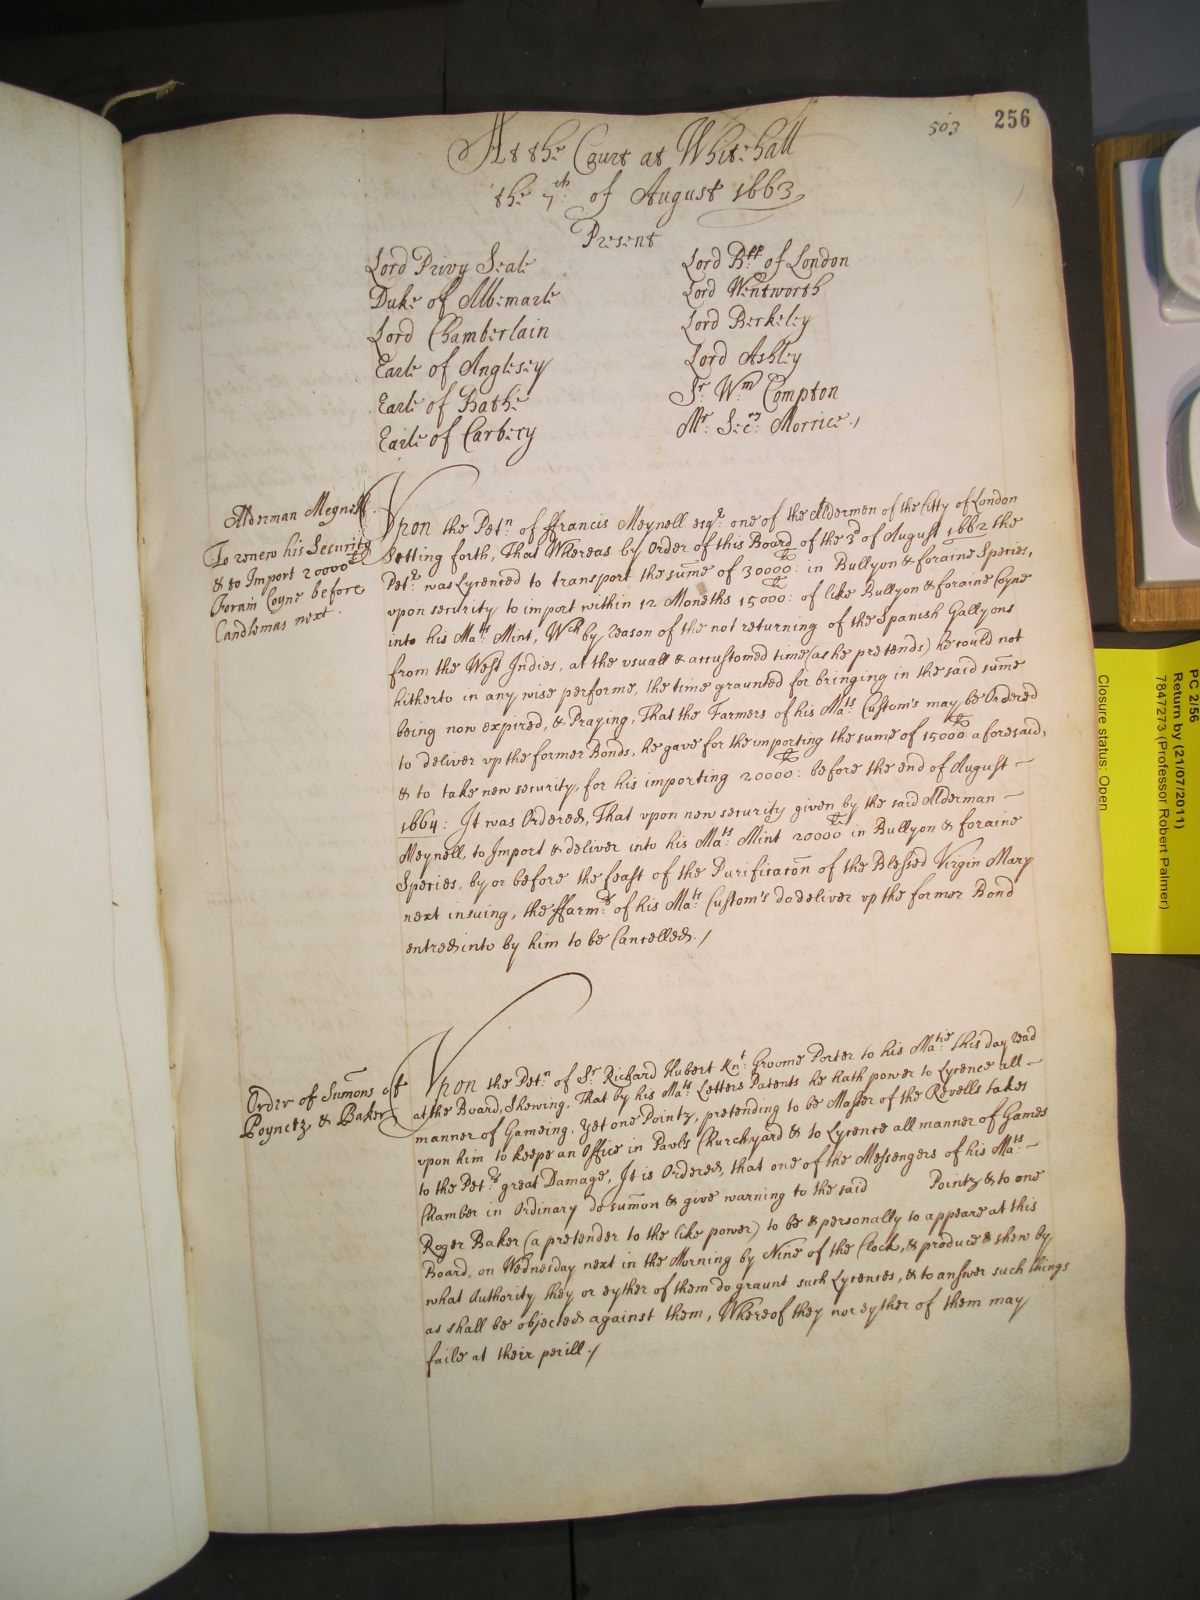 503 256
At the Court at Whitehall
the 7th: of August 1663
Present
Lord Privy Seale
Duke of Albemarle
Lord Chamberlain
Earle of Anglesey
Earle of Bathe
Earle of Carbery
Lord Bpp of London
Lord Wentworth
Lord Berkeley
Lord Ashley
Sr. Wm Compton
Mr: Secry: Morrice./
Alderman Megnell
To renew his Security
& to Import 20000li
Forain Coyne before
Candlemas next.
Vpon the Petn: of ffrancis Meynell esqr: one of the Aldermen of the Citty of London
Setting forth, That Whereas by Order of this Board of the 3d of August 1662 the
Petr: was Lycenced to transport the sume of 30000li: in Bullyon & foraine Species,
vpon security to import within 12 Moneths 15000li: of like Bullyon & foraine Coyne
into his Mats: Mint, Wch by reason of the not returning of the Spanish Gallyons
from the West Indies, at the vsuall & accustomed time (as he pretends) he could not
hitherto in any wise performe, the time graunted for bringing in the said sume
being now expired, & Praying, That the Farmers of his Mats Custom's may be Ordered
to deliver vp the former Bonds, he gave for the importing the sume of 15000li aforesaid,
& to take new security, for his importing 20000li: before the end of August -
1664: It was Ordered, That vpon new security given by the said Alderman -
Meynell, to Import & deliver into his Mats: Mint 20000li in Bullyon & foraine
Species, by or before the feast of the Purificacon of the Blessed Virgin Mary
next insuing, the ffarmrs: of his Mats: Custom's do deliver vp the former Bond
entred into by him to be Cancelled./
Order of Sumons of
Poyntz & Baker
Vpon the Petn: of Sr Richard Hubert Knt: Groome Porter to his Matie: this day read
at the Board, Shewing, That by his Mats Letters Patents he hath power to Lycence all -
manner of Gameing. Yet one Pointz, pretending to be Master of the Revells takes
vpon him to keepe an Office in Pavls Churchyard & to Lycence all manner of Games
to the Petrs: great Damage, It is Ordered, that one of the Messengers of his Mats: -
Chamber in Ordinary do sumon & give warning to the said Pointz & to one
Roger Baker (a pretender to the like power) to be & personally to appeare at this
Board, on Wednesday next in the Morning by Nine of the Clock, & produce & shew by
what Authority they or eyther of them do graunt such Lycences, & to answer such things
as shall be objected against them, Whereof they nor eyther of them may
faile at their perill./
PC 2/56
Return by (21/07/2011)
7847273 (Professor Robert Palmer)
Closure status: Open